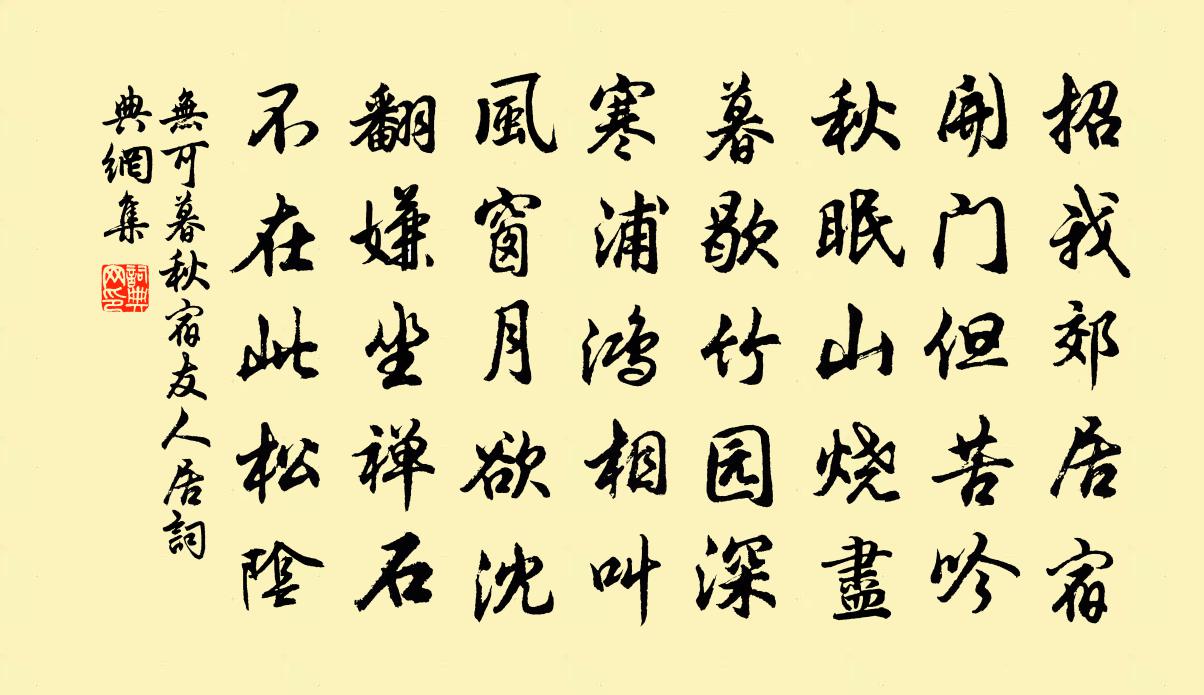 招我郊居宿
開门但苦吟
秋眠山烧盡
暮歇竹园深
寒浦鸿相叫
風窗月欲沈
翻嫌坐禅石
不在此松陰
無可暮秋宿友人居詞
典網集
詞典
网印